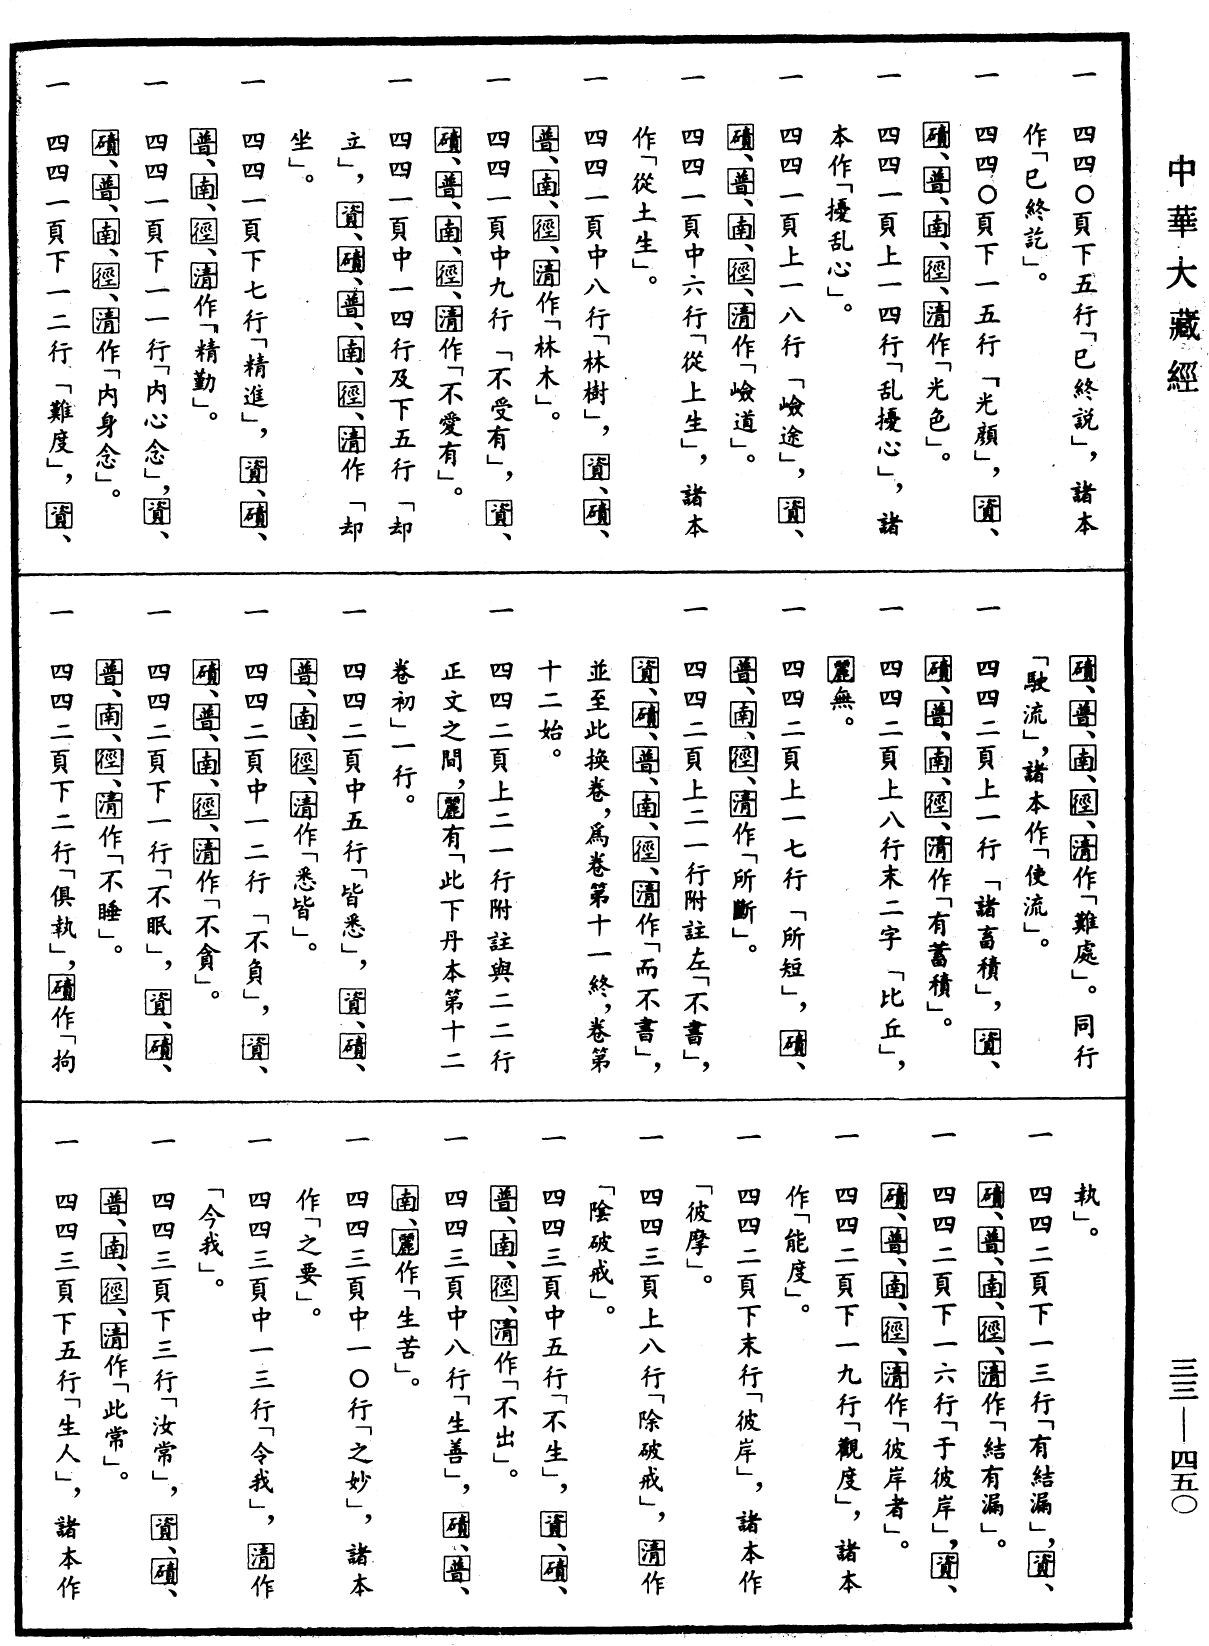 中華大藏經
一　四四〇頁下五行「已終説」，諸本
作「已終訖」。
一　四四〇頁下一五行「光顏」，資、
磧、普、南、徑、清作「光色」。
一　四四一頁上一四行「乱擾心」，諸
本作「擾乱心」。
一　四四一頁上一八行「嶮途」，資、
磧、普、南、徑、清作「嶮道」。
一　四四一頁中六行「從上生」，諸本
作「從土生」。
一　四四一頁中八行「林樹」，資、磧、
普、南、徑、清作「林木」。
一　四四一頁中九行「不受有」，資、
磧、普、南、徑、清作「不愛有」。
一　四四一頁中一四行及下五行「却
立」，資、磧、普、南、徑、清作「却
坐」。
一　四四一頁下七行「精進」，資、磧、
普、南、徑、清作「精勤」。
一　四四一頁下一一行「内心念」，資、
磧、普、南、徑、清作「内身念」。
一　四四一頁下一二行「難度」，資、
磧、普、南、徑、清作「難處」。同行
「駛流」，諸本作「使流」。
一　四四二頁上一行「諸畜積」，資、
磧、普、南、徑、清作「有蓄積」。
一　四四二頁上八行末二字「比丘」，
麗無。
一　四四二頁上一七行「所短」，磧、
普、南、徑、清作「所斷」。
一　四四二頁上二一行附註左「不書」，
資、磧、普、南、徑、清作「而不書」，
並至此换卷，爲卷第十一終，卷第
十二始。
一　四四二頁上二一行附註與二二行
正文之間，麗有「此下丹本第十二
卷初」一行。
一　四四二頁中五行「皆悉」，資、磧、
普、南、徑、清作「悉皆」。
一　四四二頁中一二行「不負」，資、
磧、普、南、徑、清作「不貪」。
一　四四二頁下一行「不眠」，資、磧、
普、南、徑、清作「不睡」。
一　四四二頁下二行「俱執」，磧作「拘
執」。
一　四四二頁下一三行「有結漏」，資、
磧、普、南、徑、清作「結有漏」。
一　四四二頁下一六行「于彼岸」，資、
磧、普、南、徑、清作「彼岸者」。
一　四四二頁下一九行「觀度」，諸本
作「能度」。
一　四四二頁下末行「彼岸」，諸本作
「彼摩」。
一　四四三頁上八行「除破戒」，清作
「陰破戒」。
一　四四三頁中五行「不生」，資、磧、
普、南、徑、清作「不出」。
一　四四三頁中八行「生善」，磧、普、
南、麗作「生苦」。
一　四四三頁中一〇行「之妙」，諸本
作「之要」。
一　四四三頁中一三行「令我」，清作
「今我」。
一　四四三頁下三行「汝常」，資、磧、
普、南、徑、清作「此常」。
一　四四三頁下五行「生人」，諸本作
三三—四五〇